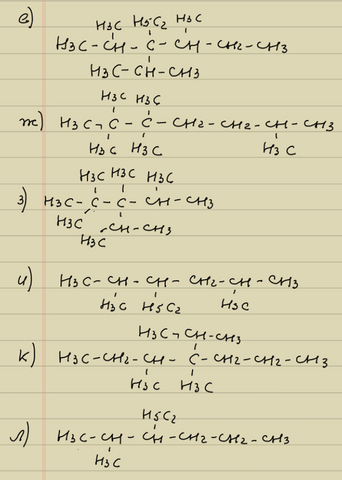 H3C H5C2 H3C
е) H3C-CH-C-CH-CH2-CH3
H3C-CH-CH3
H3C H3C
ж) H3C-C-C-CH2-CH2-CH-CH3
H3C H3C H3C
H3C H3C H3C
з) H3C-C-C-CH-CH3
H3C
H3C CH-CH3
и) H3C-CH-CH-CH2-CH-CH3
H3C H5C2 H3C
H3C-CH-CH3
к) H3C-CH2-CH-C-CH2-CH2-CH3
H3C H3C
H5C2
л) H3C-CH-CH-CH2-CH2-CH3
H3C